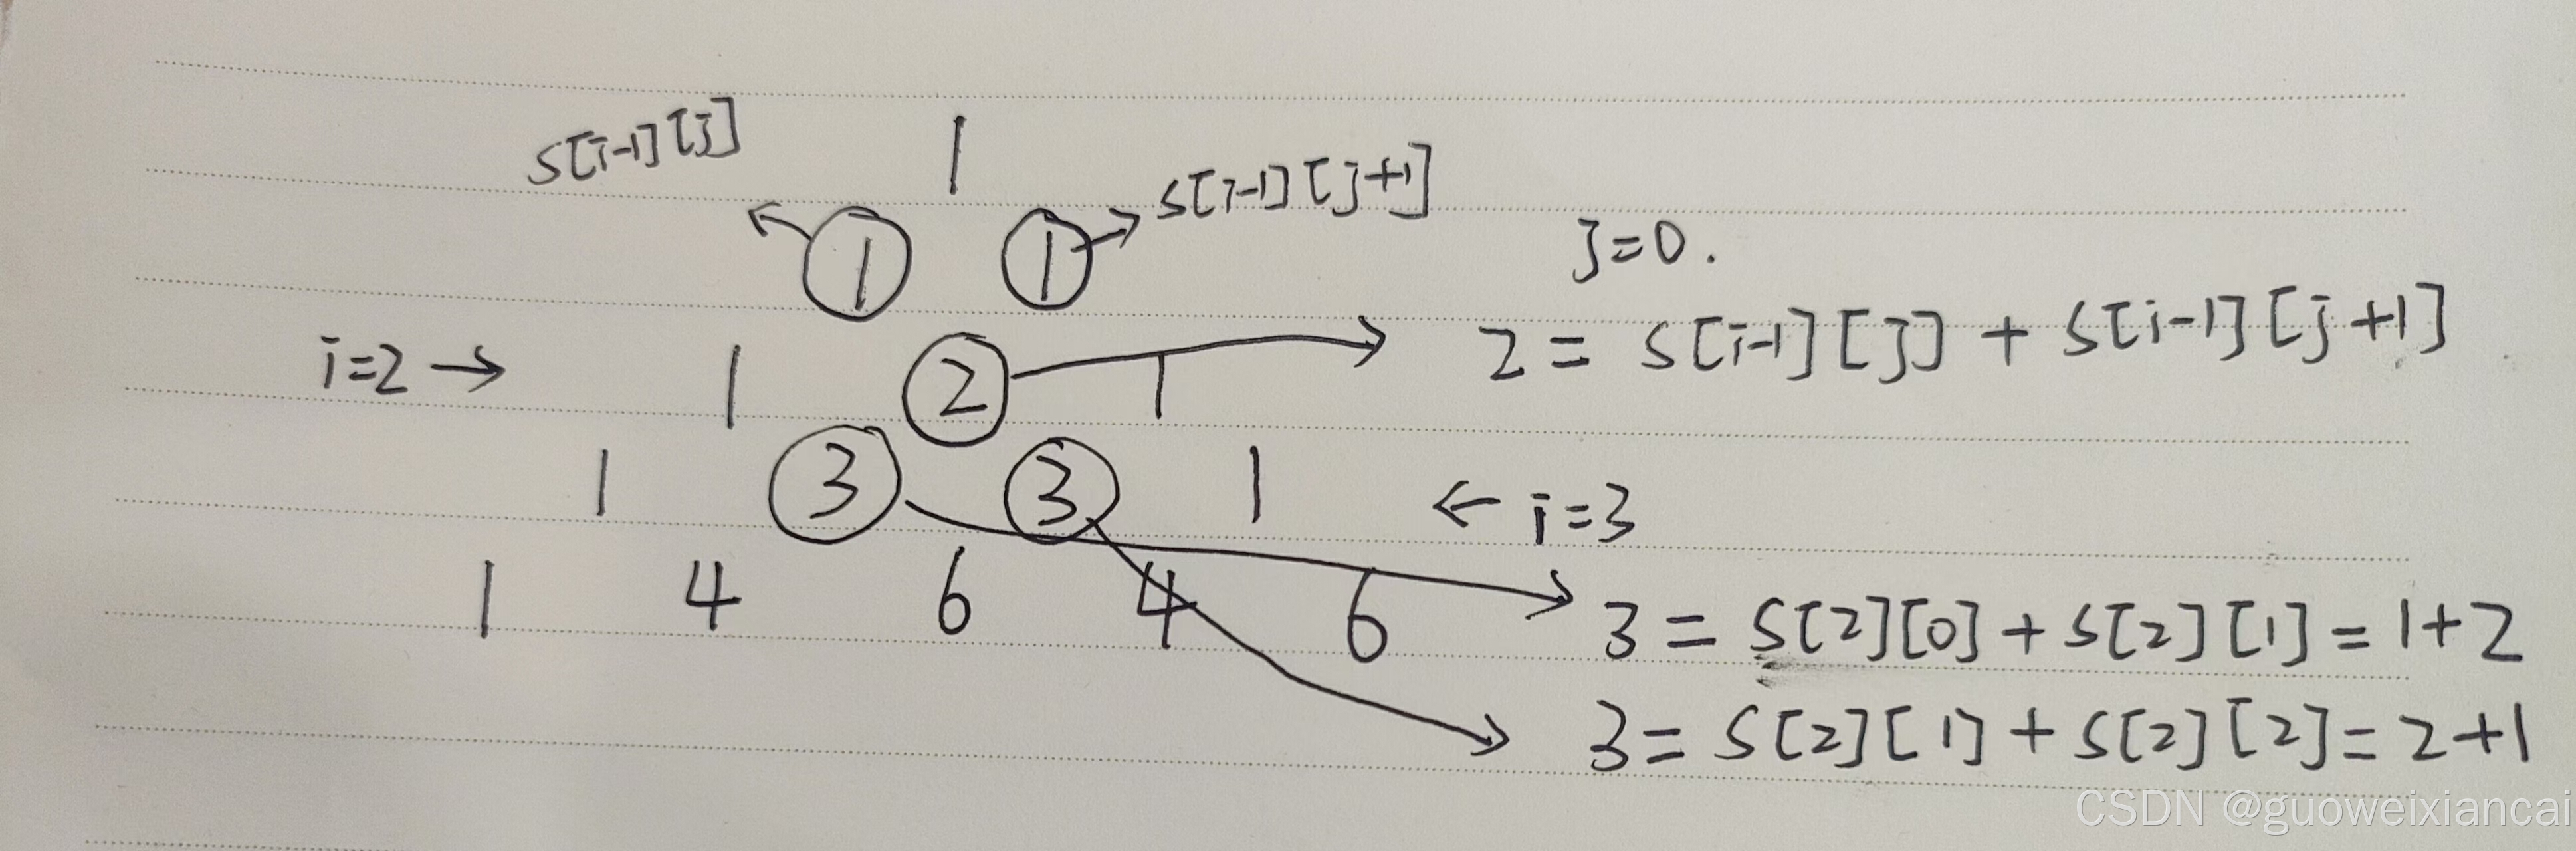 s[i-1][j]
1
s[i-1][j+1]
1 1
j=0.
i=2 → 1 2 1
2 = s[i-1][j] + s[i-1][j+1]
1 3 3 1 ← i=3
1 4 6 4 6
3 = s[2][0] + s[2][1] = 1+2
3 = s[2][1] + s[2][2] = 2+1
CSDN @guoweixiancai